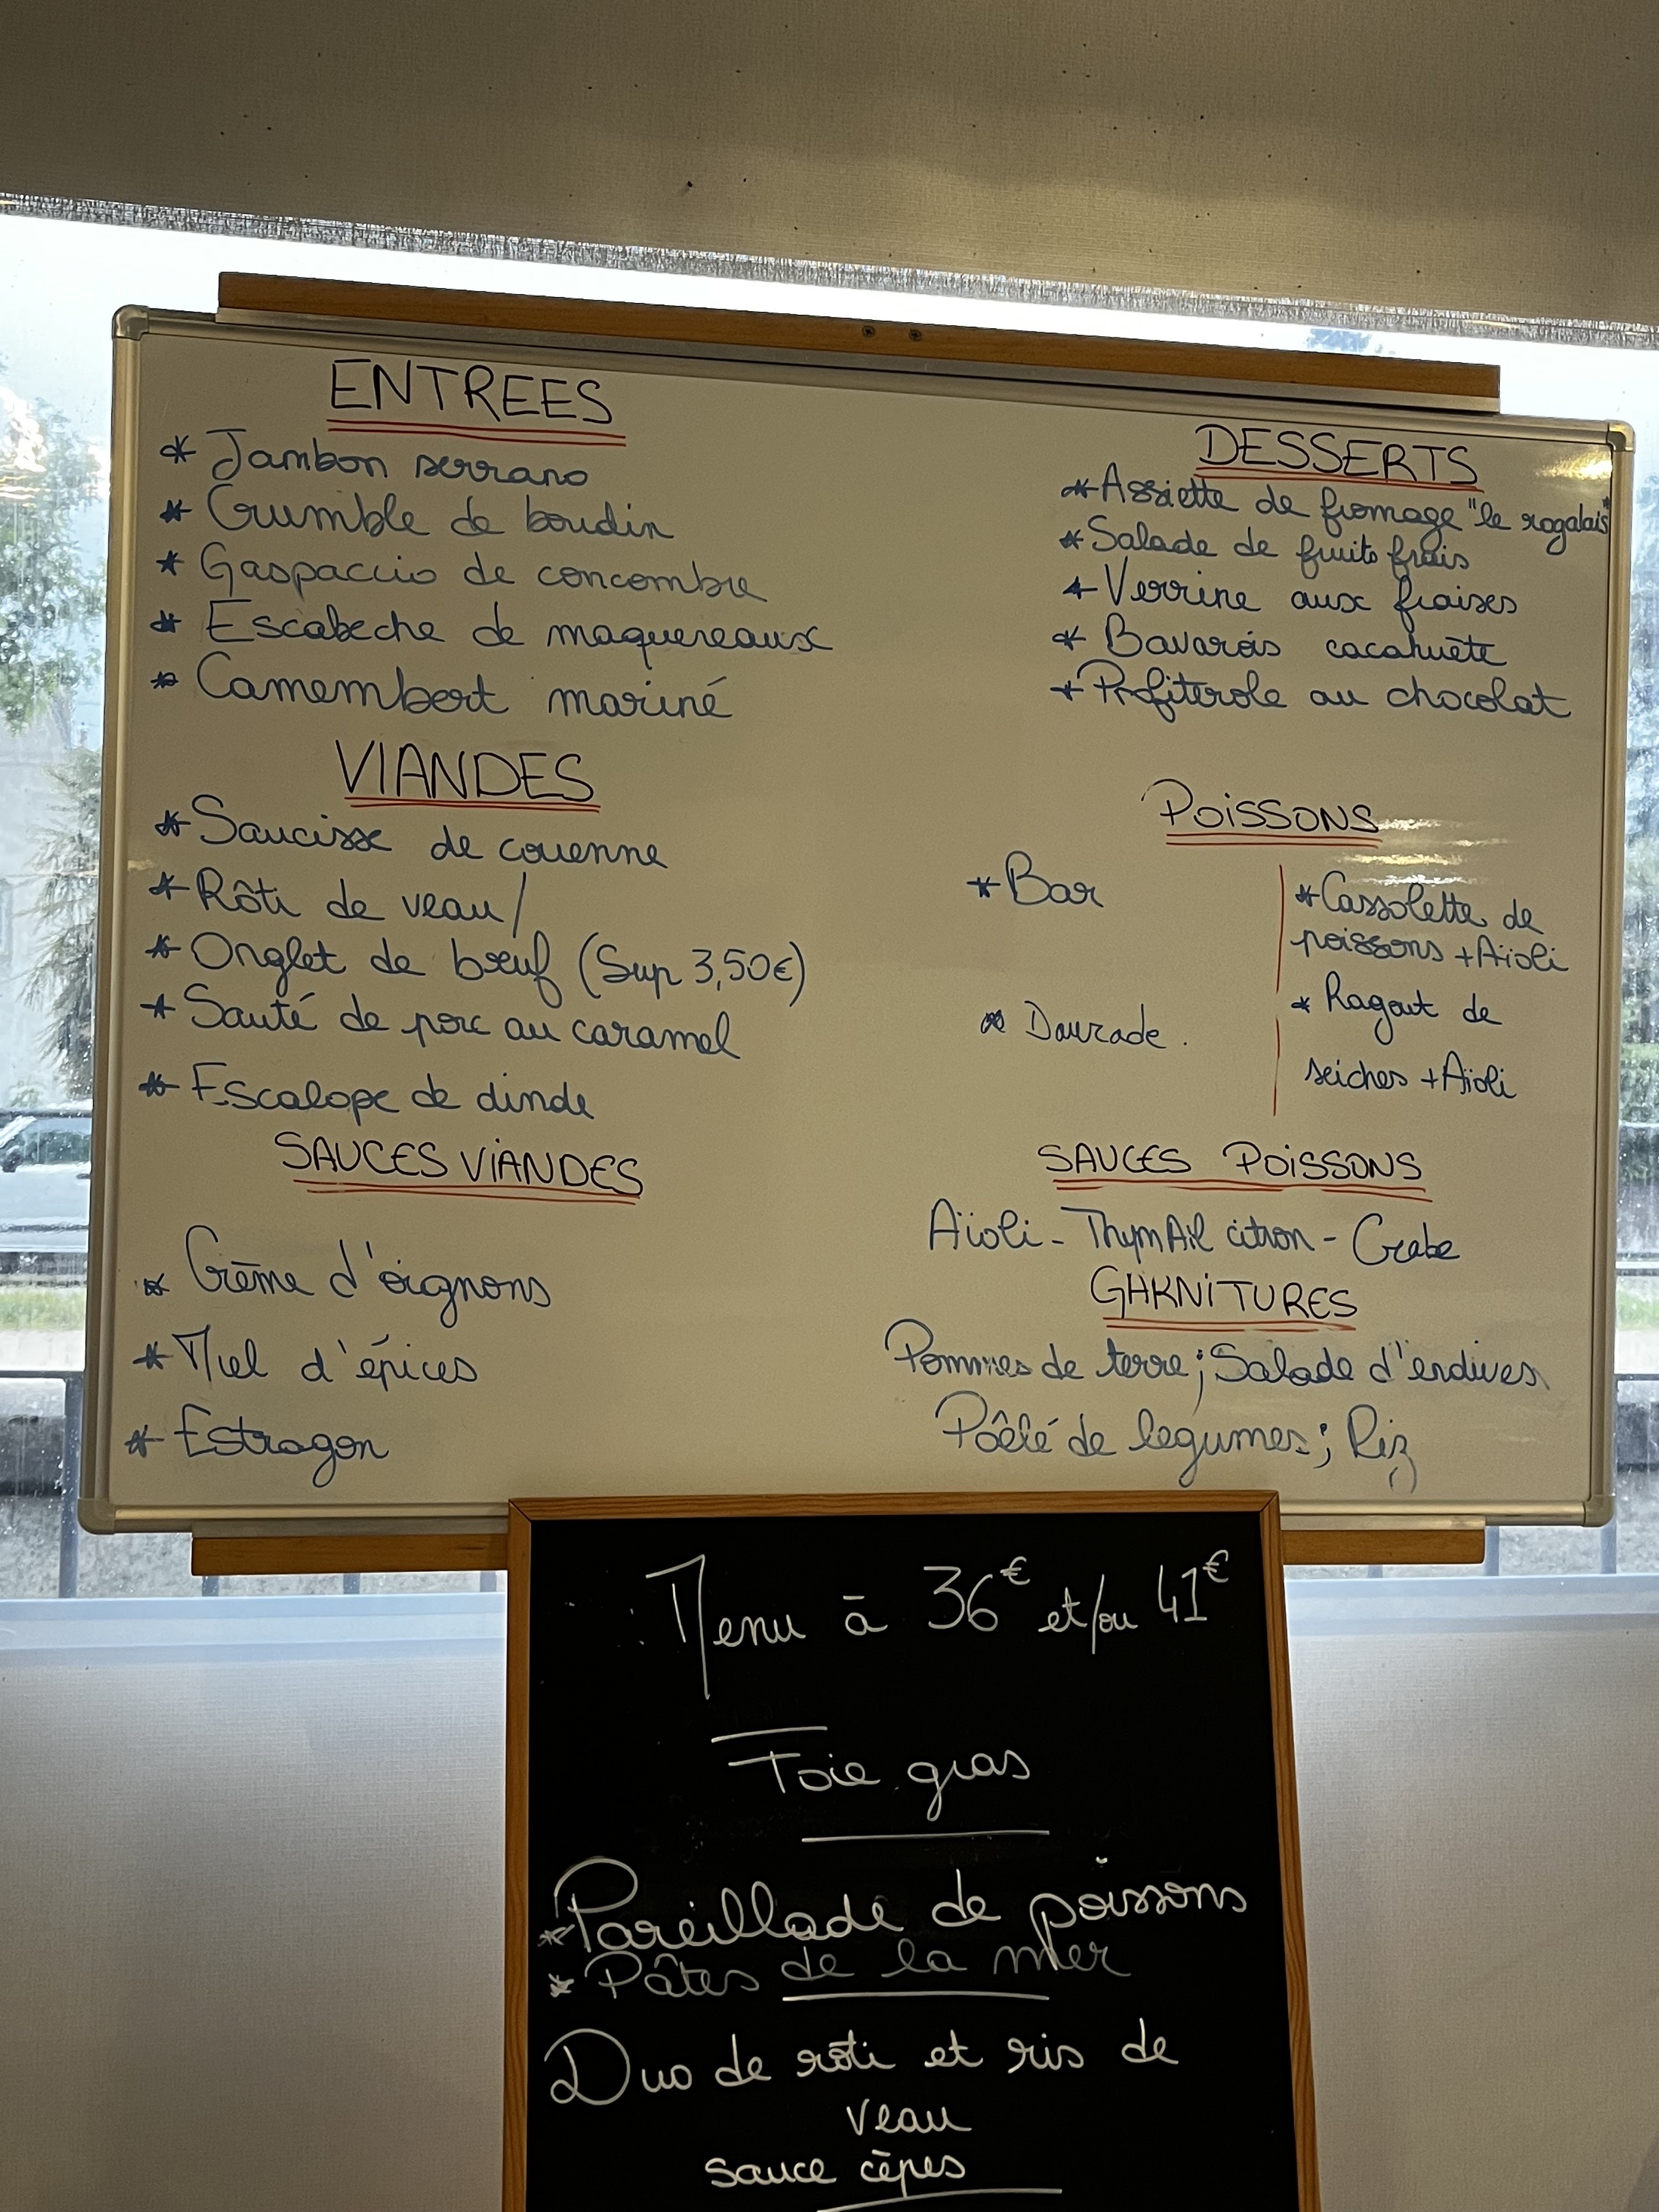 ENTREES
* Jambon serrano
* Crumble de boudin
* Gaspaccio de concombre
* Escabeche de maquereaux
* Camembert mariné
VIANDES
* Saucisse de couenne
* Rôti de veau/
* Onglet de bœuf (Sup 3,50€)
* Sauté de porc au caramel
* Escalope de dinde
SAUCES VIANDES
* Crème d'oignons
* Miel d'épices
* Estragon
DESSERTS
* Assiette de fromage "le rogalais"
* Salade de fruits frais
* Verrine aux fraises
* Bavarois cacahuète
* Profiterole au chocolat
POISSONS
* Bar
* Daurade.
* Cassolette de
poissons + Aïoli
* Ragout de
seiches + Aïoli
SAUCES POISSONS
Aïoli - Thym Ail citron - Crabe
GARNITURES
Pommes de terre; Salade d'endives
Poêlé de legumes; Riz
Menu à 36€ et/ou 41€
Foie gras
* Pareillade de poissons
* Pâtes de la mer
Duo de rôti et ris de
veau
sauce cèpes